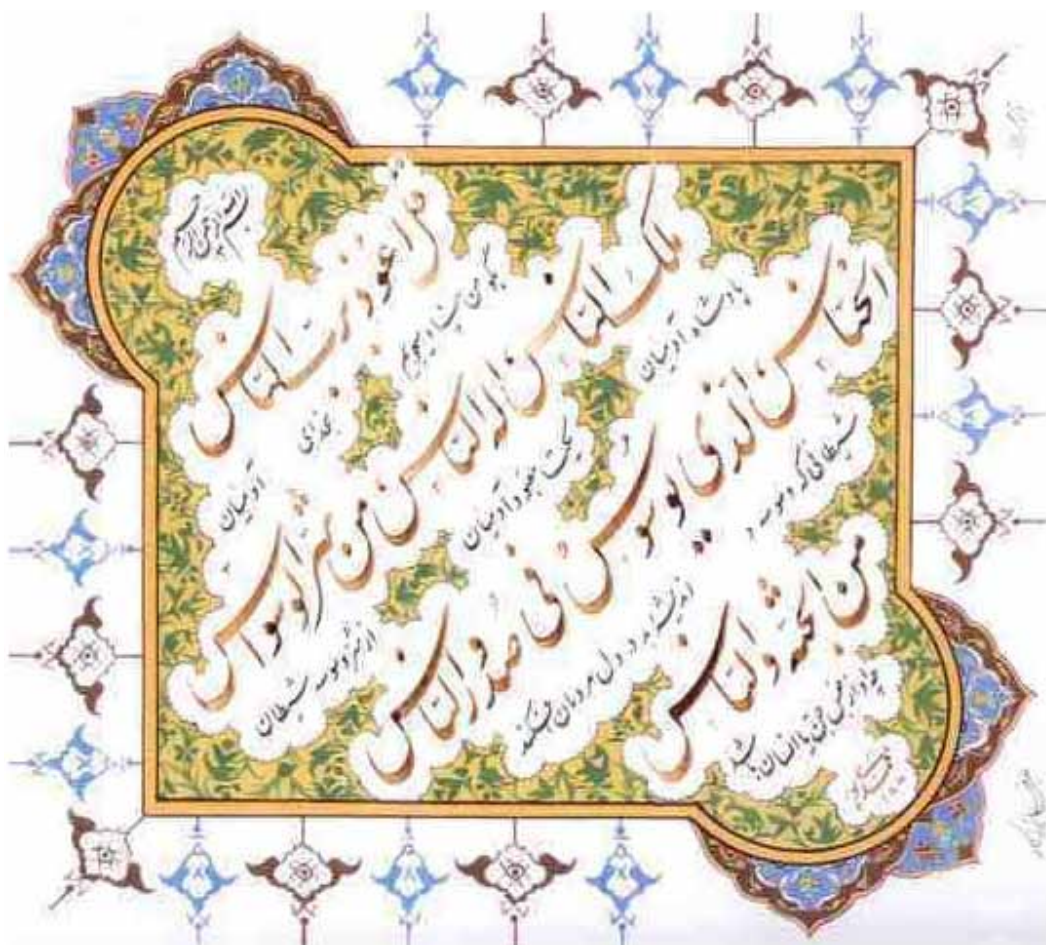 بسم الله الرحمن الرحیم
قل اعوذ برب الناس
بگو من پناه میجویم
بخدای
آدمیان
ملک الناس اله الناس من شر الوسواس
پادشاه آدمیان
یکتا معبود آدمیان
از شر وسوسه شیطان
الخناس الذی یوسوس فی صدور الناس
شیطانی که وسوسه و
اندیشه بد در دل مردمان افکند
من الجنة والناس
چه او از جنس جن یا انسان باشد